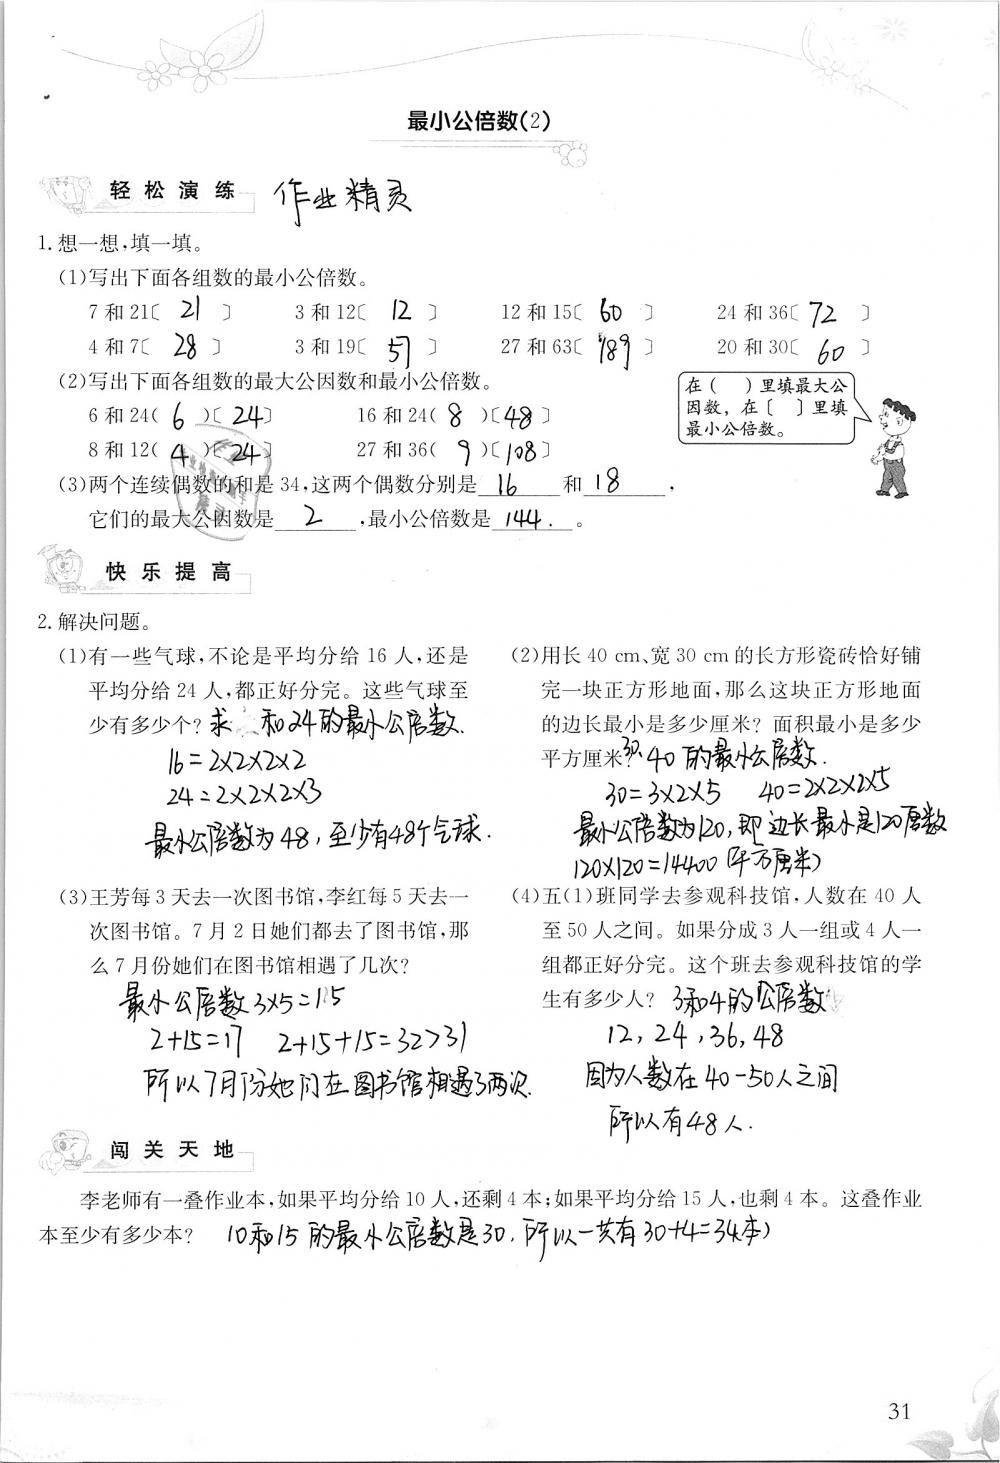 最小公倍数(2)
轻松演练 作业精灵
1. 想一想,填一填。
(1)写出下面各组数的最小公倍数。
7 和 21〔 21 〕 3 和 12〔 12 〕 12 和 15〔 60 〕 24 和 36〔 72 〕
4 和 7〔 28 〕 3 和 19〔 57 〕 27 和 63〔 189 〕 20 和 30〔 60 〕
(2)写出下面各组数的最大公因数和最小公倍数。
6 和 24( 6 )〔 24 〕 16 和 24( 8 )〔 48 〕
8 和 12( 4 )〔 24 〕 27 和 36( 9 )〔 108 〕
在( )里填最大公
因数，在〔 〕里填
最小公倍数。
(3)两个连续偶数的和是 34,这两个偶数分别是 16 和 18 ,
它们的最大公因数是 2 ,最小公倍数是 144. 。
快乐提高
2. 解决问题。
(1)有一些气球,不论是平均分给 16 人,还是
平均分给 24 人,都正好分完。这些气球至
少有多少个? 求 和24的最小公倍数.
16=2×2×2×2
24=2×2×2×3
最小公倍数为48,至少有48个气球.
(2)用长 40 cm、宽 30 cm 的长方形瓷砖恰好铺
完一块正方形地面,那么这块正方形地面
的边长最小是多少厘米? 面积最小是多少
平方厘米? 30 40 的最小公倍数.
30=3×2×5 40=2×2×2×5
最小公倍数为120,即边长最小是120厘数
120×120=14400(平方厘米)
(3)王芳每 3 天去一次图书馆,李红每 5 天去一
次图书馆。7 月 2 日她们都去了图书馆,那
么 7 月份她们在图书馆相遇了几次?
最小公倍数3×5=15
2+15=17 2+15+15=32>31
所以7月份她们在图书馆相遇了两次.
(4)五(1)班同学去参观科技馆,人数在 40 人
至 50 人之间。如果分成 3 人一组或 4 人一
组都正好分完。这个班去参观科技馆的学
生有多少人? 3和4的公倍数
12, 24, 36, 48
因为人数在40-50人之间
所以有48人.
闯关天地
李老师有一叠作业本,如果平均分给 10 人,还剩 4 本;如果平均分给 15 人,也剩 4 本。这叠作业
本至少有多少本? 10和15的最小公倍数是30,所以一共有30+4=34本)
31